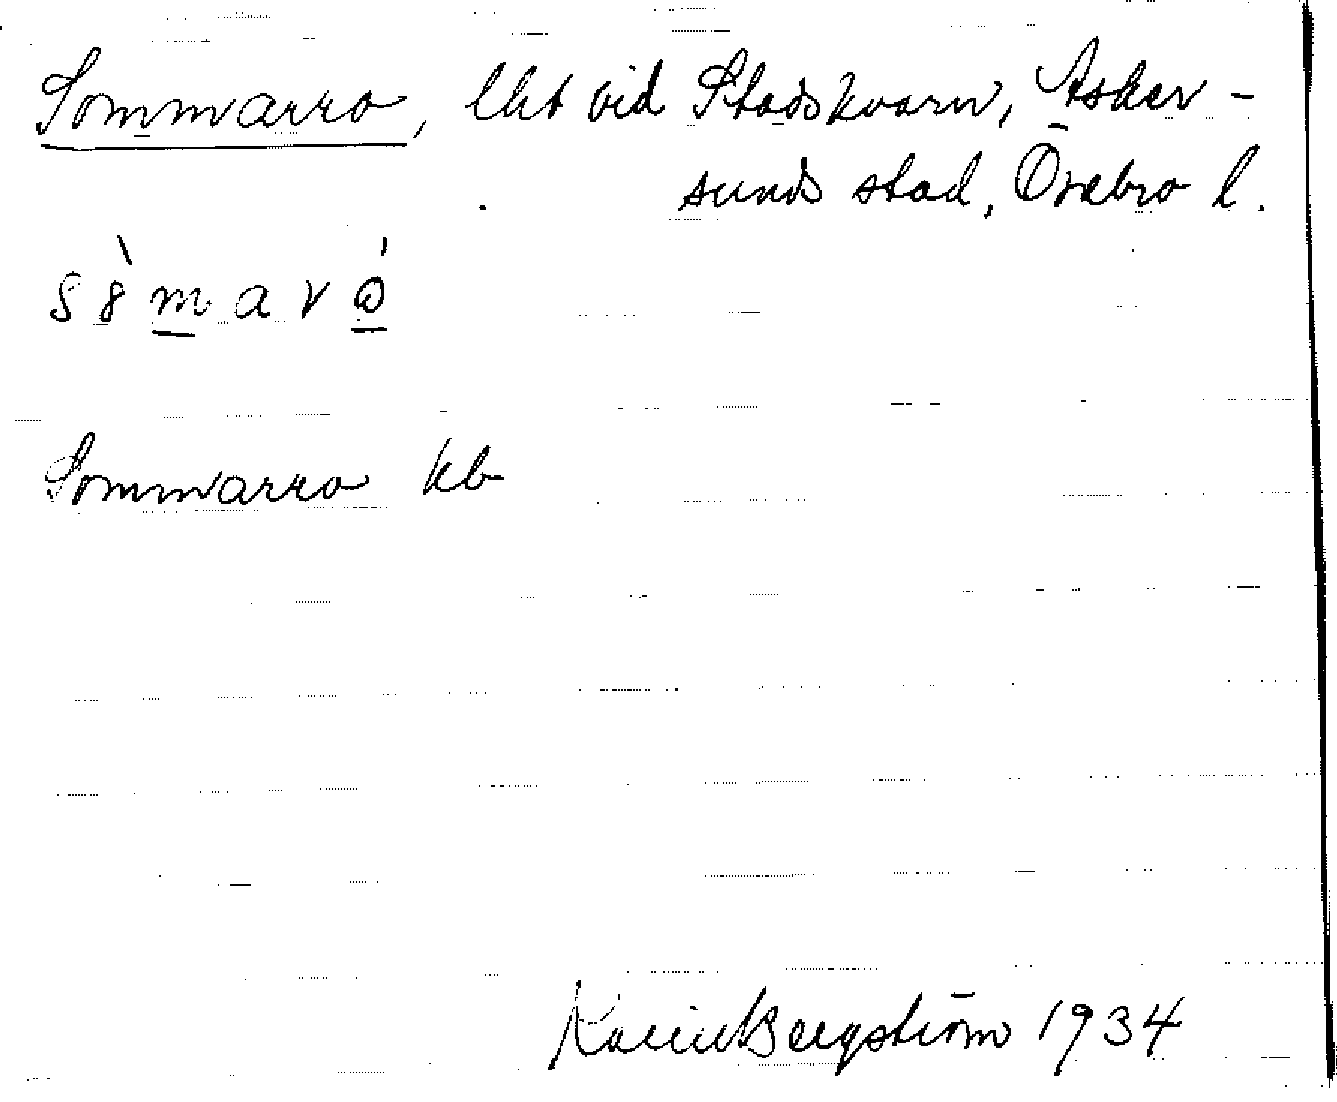 Sommarro, lht vid Stadskvarn, Asker-
sunds stad, Örebro l.
s8̀mavó
Sommarro kb
Karin Bergström 1934